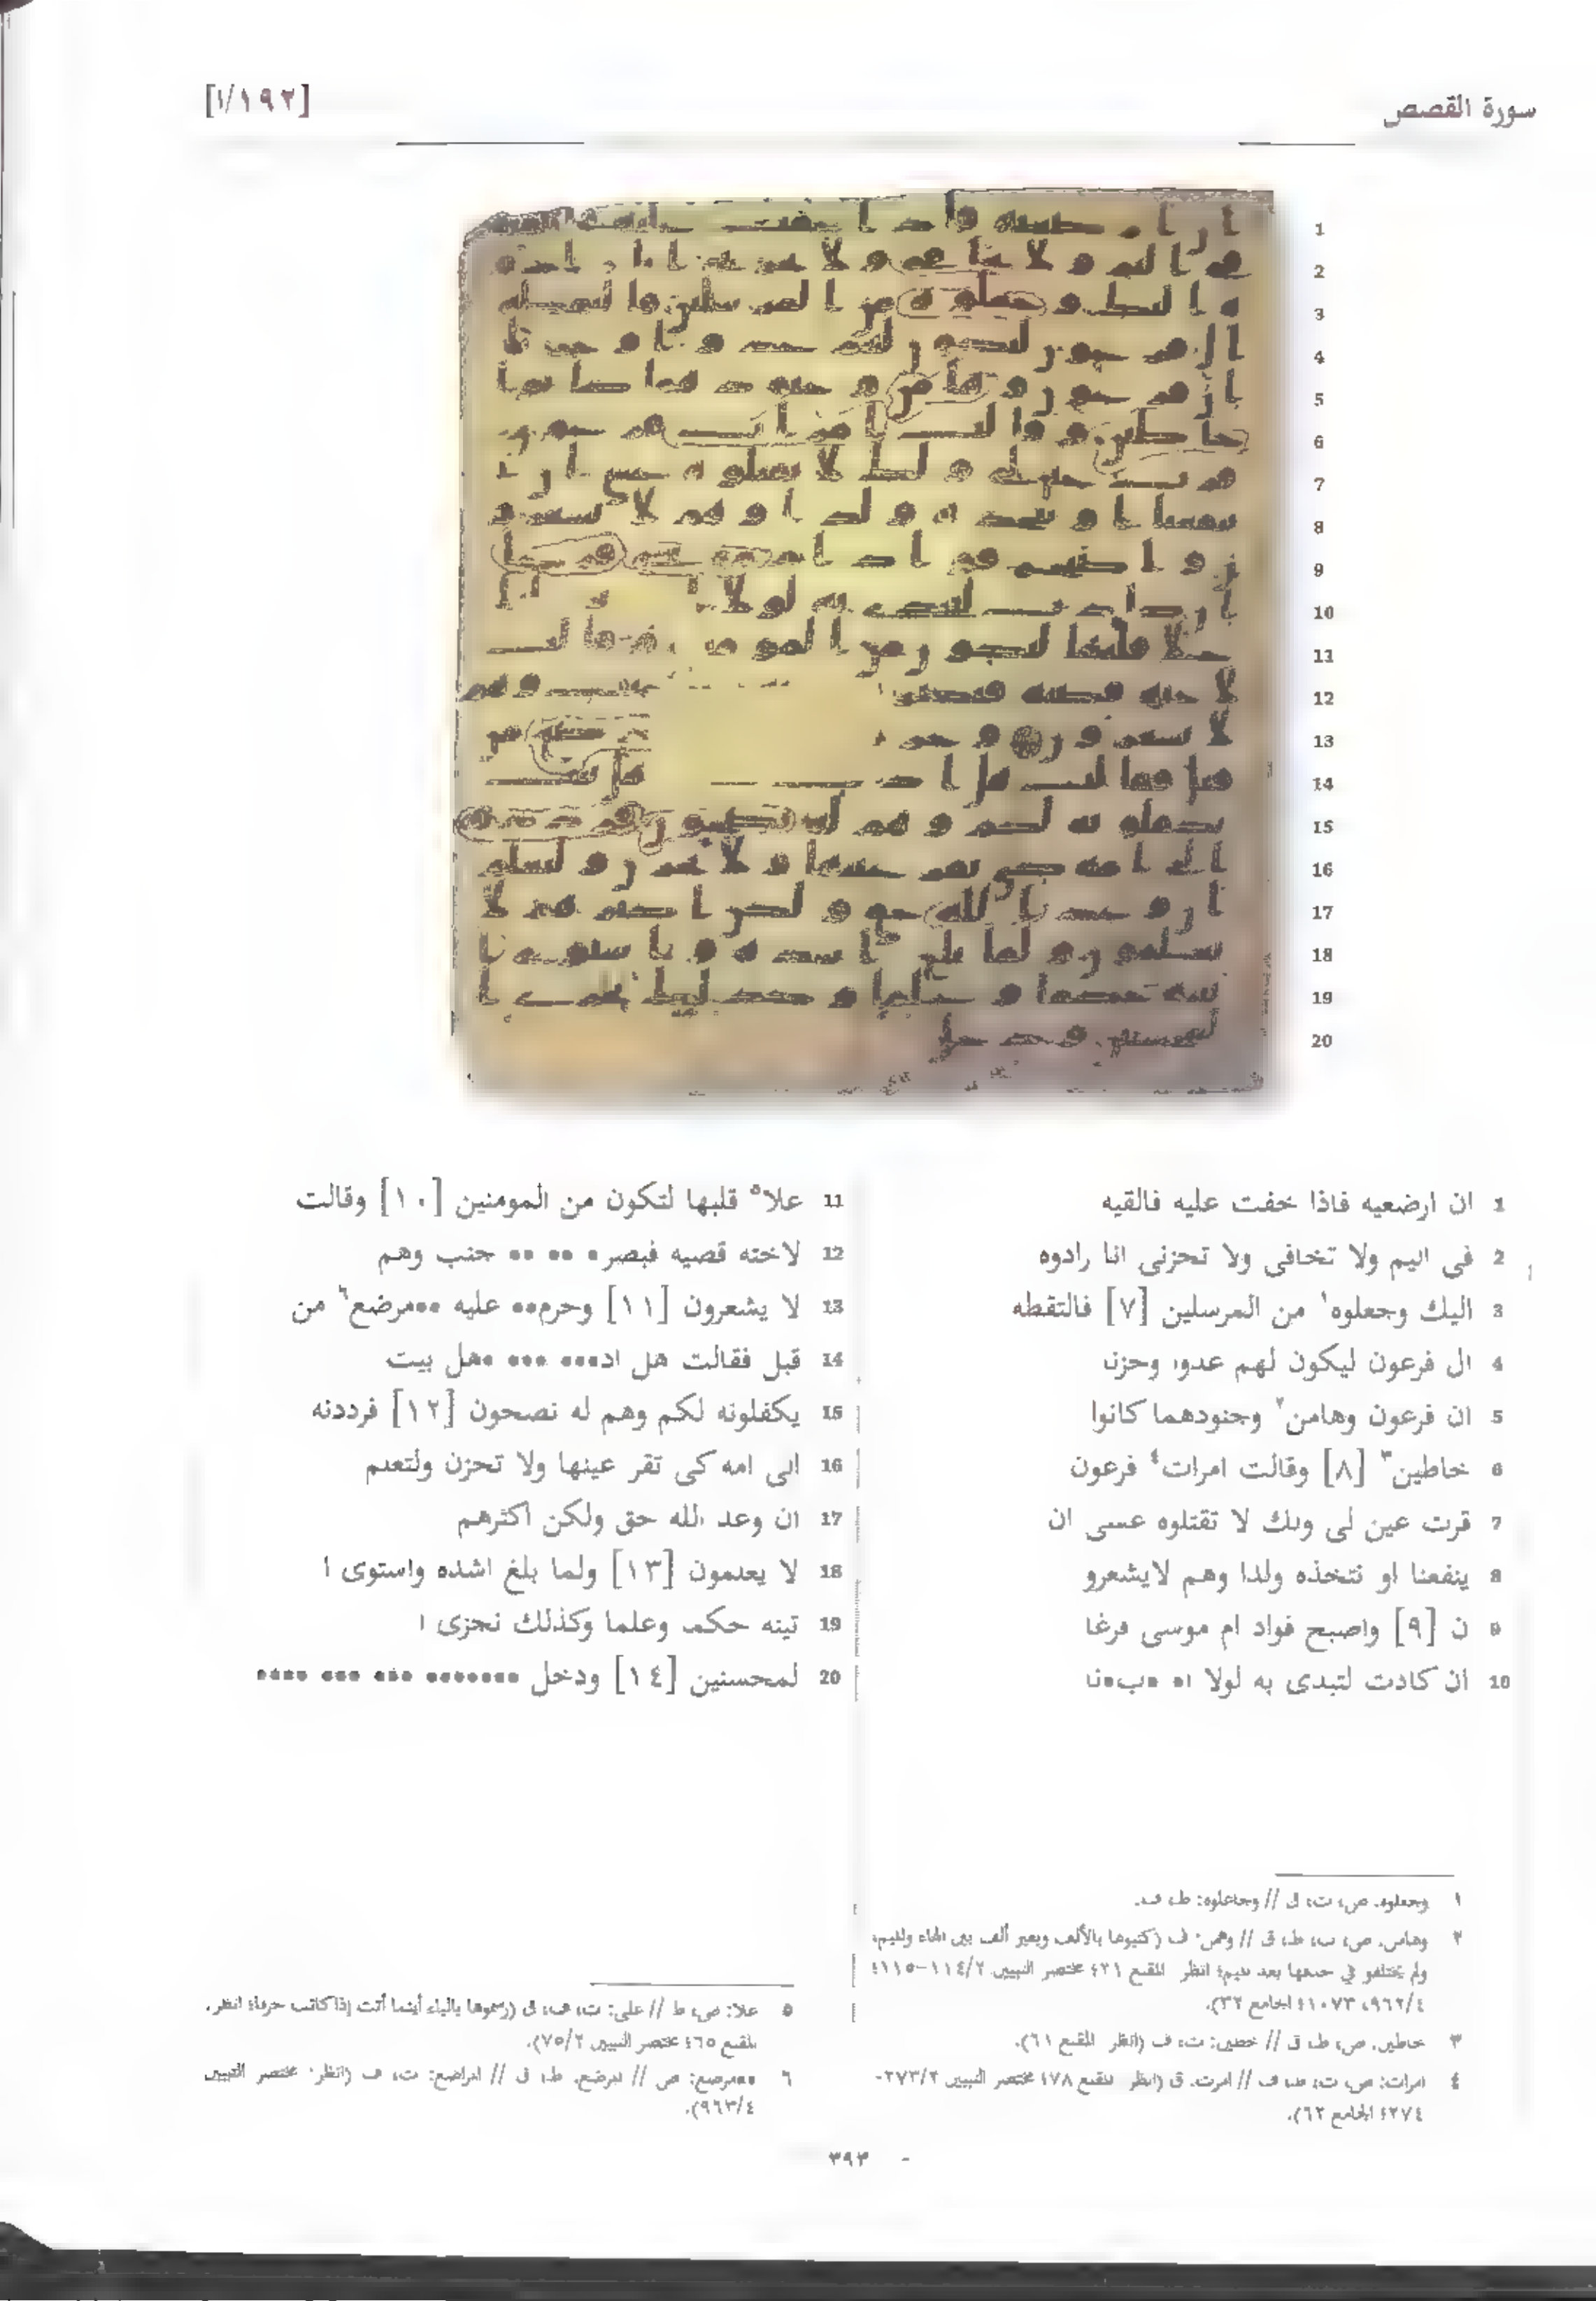 سورة القصص
[١/١٩٢]
1 ان ارضعيه فاذا خفت عليه فالقيه
2 فى اليم ولا تخافى ولا تحزنى انا رادوه
3 اليك وجعلوه١ من المرسلين [٧] فالتقطه
4 ال فرعون ليكون لهم عدوا وحزنا
5 ان فرعون وهامن٢ وجنودهما كانوا
6 خاطين٣ [٨] وقالت امرات٤ فرعون
7 قرت عين لى ولك لا تقتلوه عسى ان
8 ينفعنا او نتخذه ولدا وهم لايشعرو
9 ن [٩] واصبح فواد ام موسى فرغا
10 ان كادت لتبدى به لولا ا• •ب•نا
11 علا٥ قلبها لتكون من المومنين [١٠] وقالت
12 لاخته قصيه فبصر• •• •• جنب وهم
13 لا يشعرون [١١] وحرم•• عليه ••مرضع٦ من
14 قبل فقالت هل اد••• ••• •هل بيت
15 يكفلونه لكم وهم له نصحون [١٢] فرددنه
16 الى امه كى تقر عينها ولا تحزن ولتعلم
17 ان وعد الله حق ولكن اكثرهم
18 لا يعلمون [١٣] ولما بلغ اشده واستوى ا
19 تينه حكما وعلما وكذلك نجزى ا
20 لمحسنين [١٤] ودخل ••••••• ••• ••• ••••
١ وجعلوه: ص، ت، ق // وجاعلوه: ط، ف.
٢ وهامن: ص، ت، ط، ق // وهمن: ف (كتبوها بالألف وبغير ألف بين الهاء والميم،
ولم يختلفو في حذفها بعد الميم؛ انظر المقنع ٢١؛ مختصر التبيين ١١٤/٢-١١٥؛
٩٦٢/٤، ١٠٧٣؛ الجامع ٣٢).
٣ خاطين: ص، ط، ق // خطين: ت، ف (انظر المقنع ٦١).
٤ امرات: ص، ت، ط، ف // امرت: ق (انظر المقنع ٧٨؛ مختصر التبيين ٢٧٣/٢-
٢٧٤؛ الجامع ٦٢).
٥ علا: ص، ط // على: ت، ف، ق (رسموها بالياء أينما أتت إذا كانت حرفا؛ انظر:
المقنع ٦٥؛ مختصر التبيين ٧٥/٢).
٦ ••مرضع: ص // المرضع: ط، ق // المراضع: ت، ف (انظر: مختصر التبيين
٩٦٣/٤).
٣٩٣